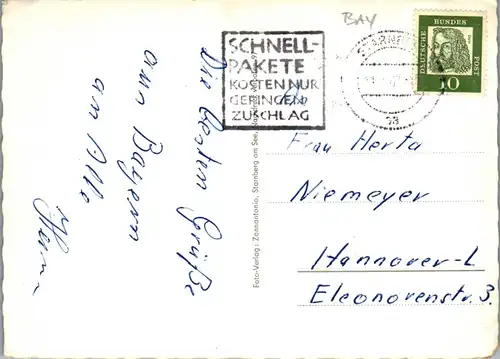 BAY
SCHNELL-
PAKETE
KOSTEN NUR
GERINGEN
ZUSCHLAG
DEUTSCHE BUNDES POST
10
Die besten Grüße
aus Bayern
an Alle
Foto-Verlag: Zannantonio, Starnberg am See,
Frau Herta
Niemeyer
Hannover-L
Eleonorenstr. 3.